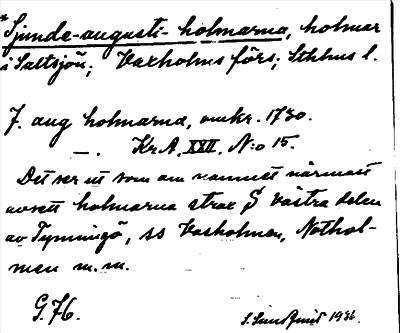 *Sjunde-augusti-holmarna, holmar
i Saltsjön; Vaxholms förs; Sthlms l.
7. aug holmarna, omkr. 1730.
—. Kr.A. XXII. N:o 15.
Det ser ut som om namnet närmast
avsett holmarna strax S västra delen
av Tynningö, ss Vasholmen, Nothol-
men m.m.
G.76. 1936